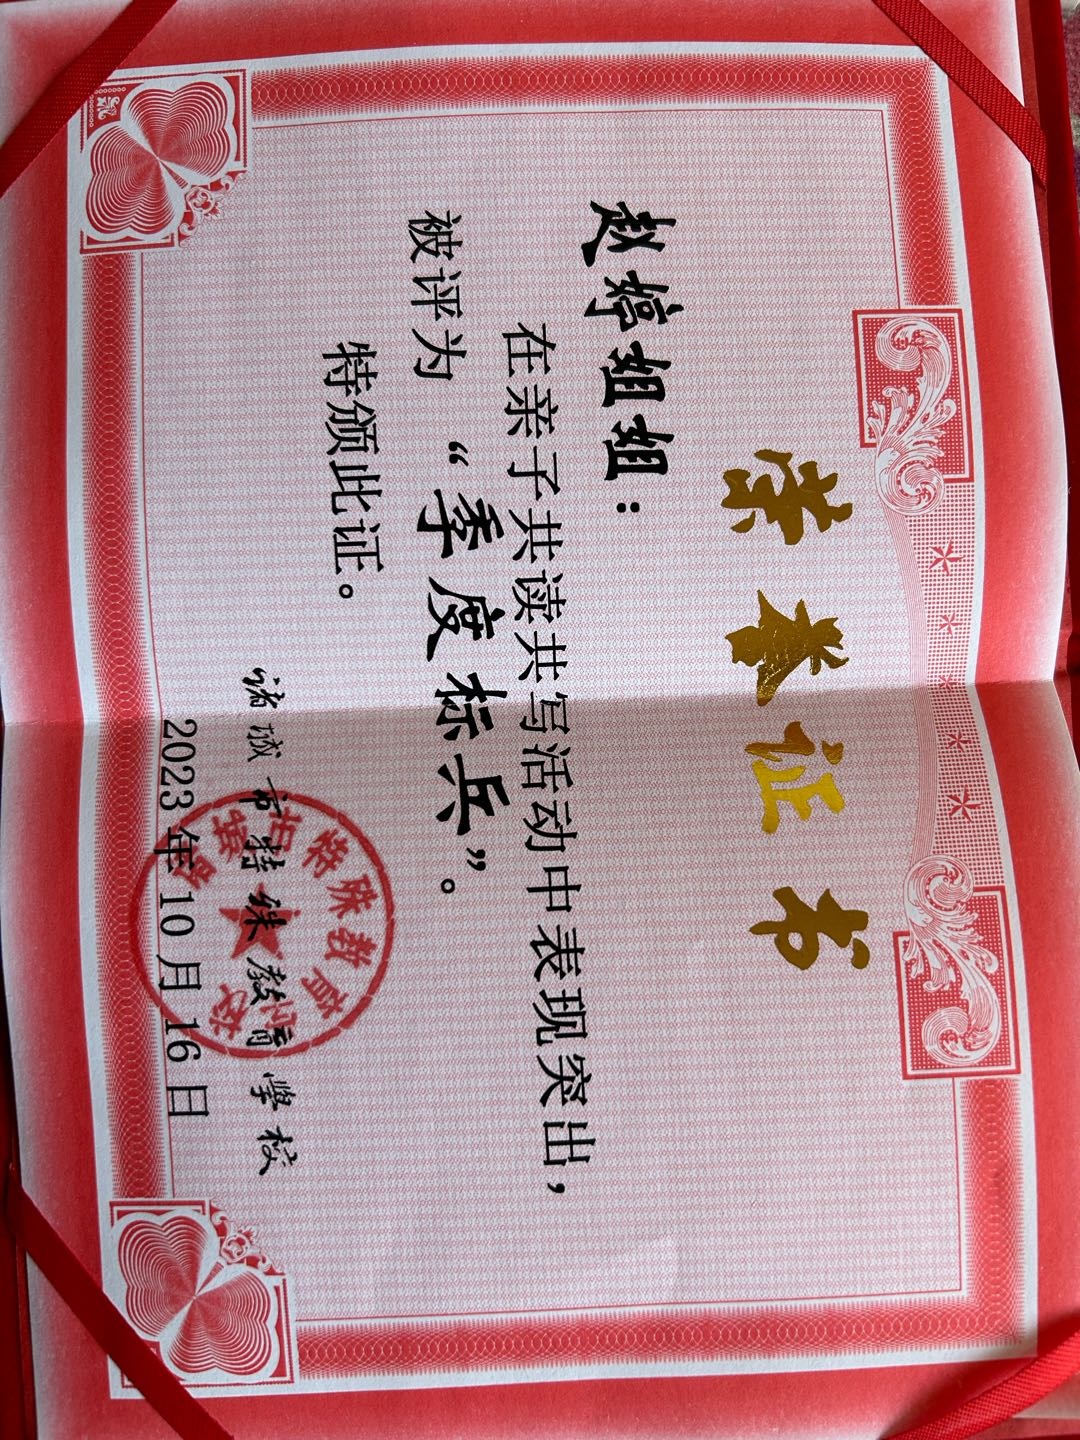 荣誉证书
赵婷姐姐：
在亲子共读共写活动中表现突出，
被评为“季度标兵”。
特颁此证。
诸城市特殊教育学校
2023年10月16日